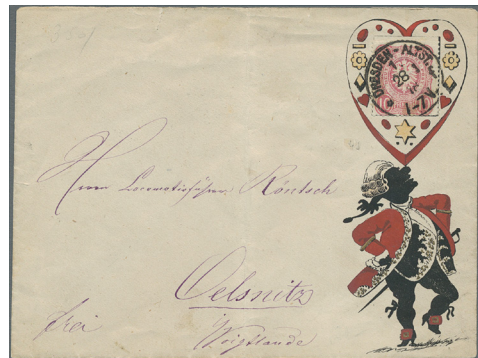 DRESDEN-ALTST.
28 1
1-7V.
Herrn Locomotivführer Röntsch
Oelsnitz
i/Voigtlande
frei